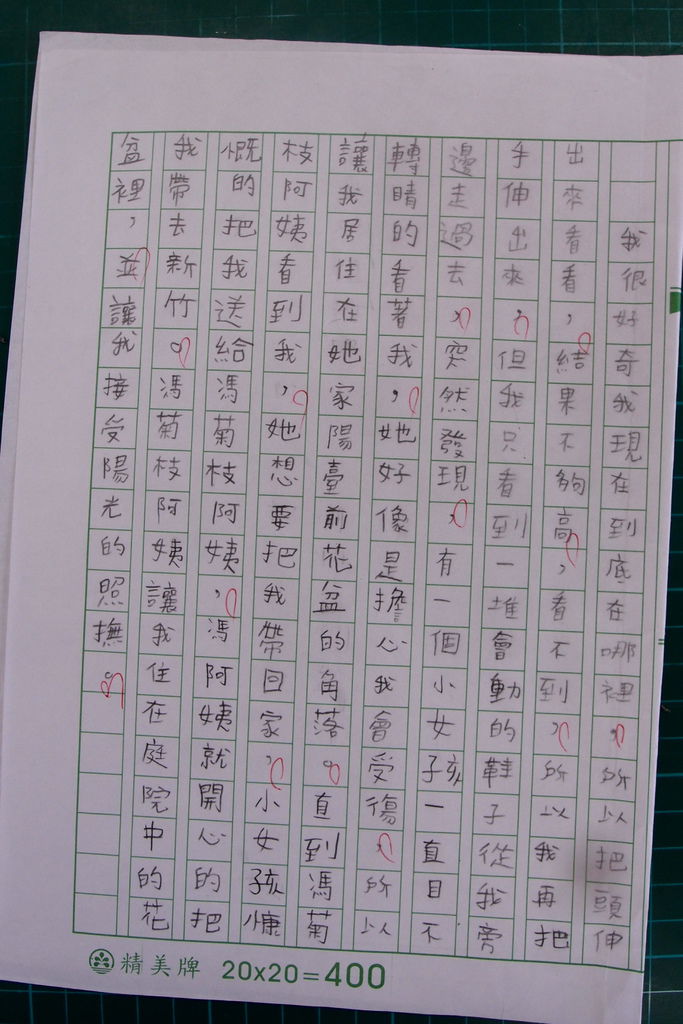 我很好奇我現在到底在哪裡。所以把頭伸
出來看看，結果不夠高，看不到，所以我再把
手伸出來，但我只看到一堆會動的鞋子從我旁
邊走過去，突然發現，有一個小女孩一直目不
轉睛的看著我，她好像是擔心我會受傷，所以
讓我居住在她家陽臺前花盆的角落。直到馮菊
枝阿姨看到我，她想要把我帶回家，小女孩慷
慨的把我送給馮菊枝阿姨，馮阿姨就開心的把
我帶去新竹。馮菊枝阿姨讓我住在庭院中的花
盆裡，並讓我接受陽光的照撫。
精美牌 20x20=400